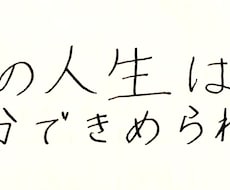 の人生は
分できめられ